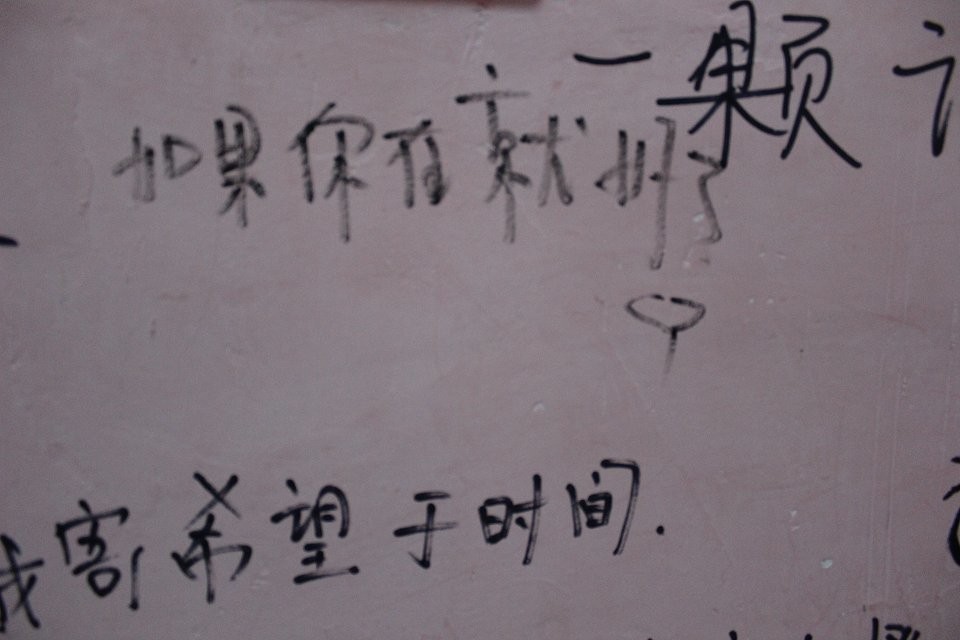 一颗
如果你在就好了
我寄希望于时间.